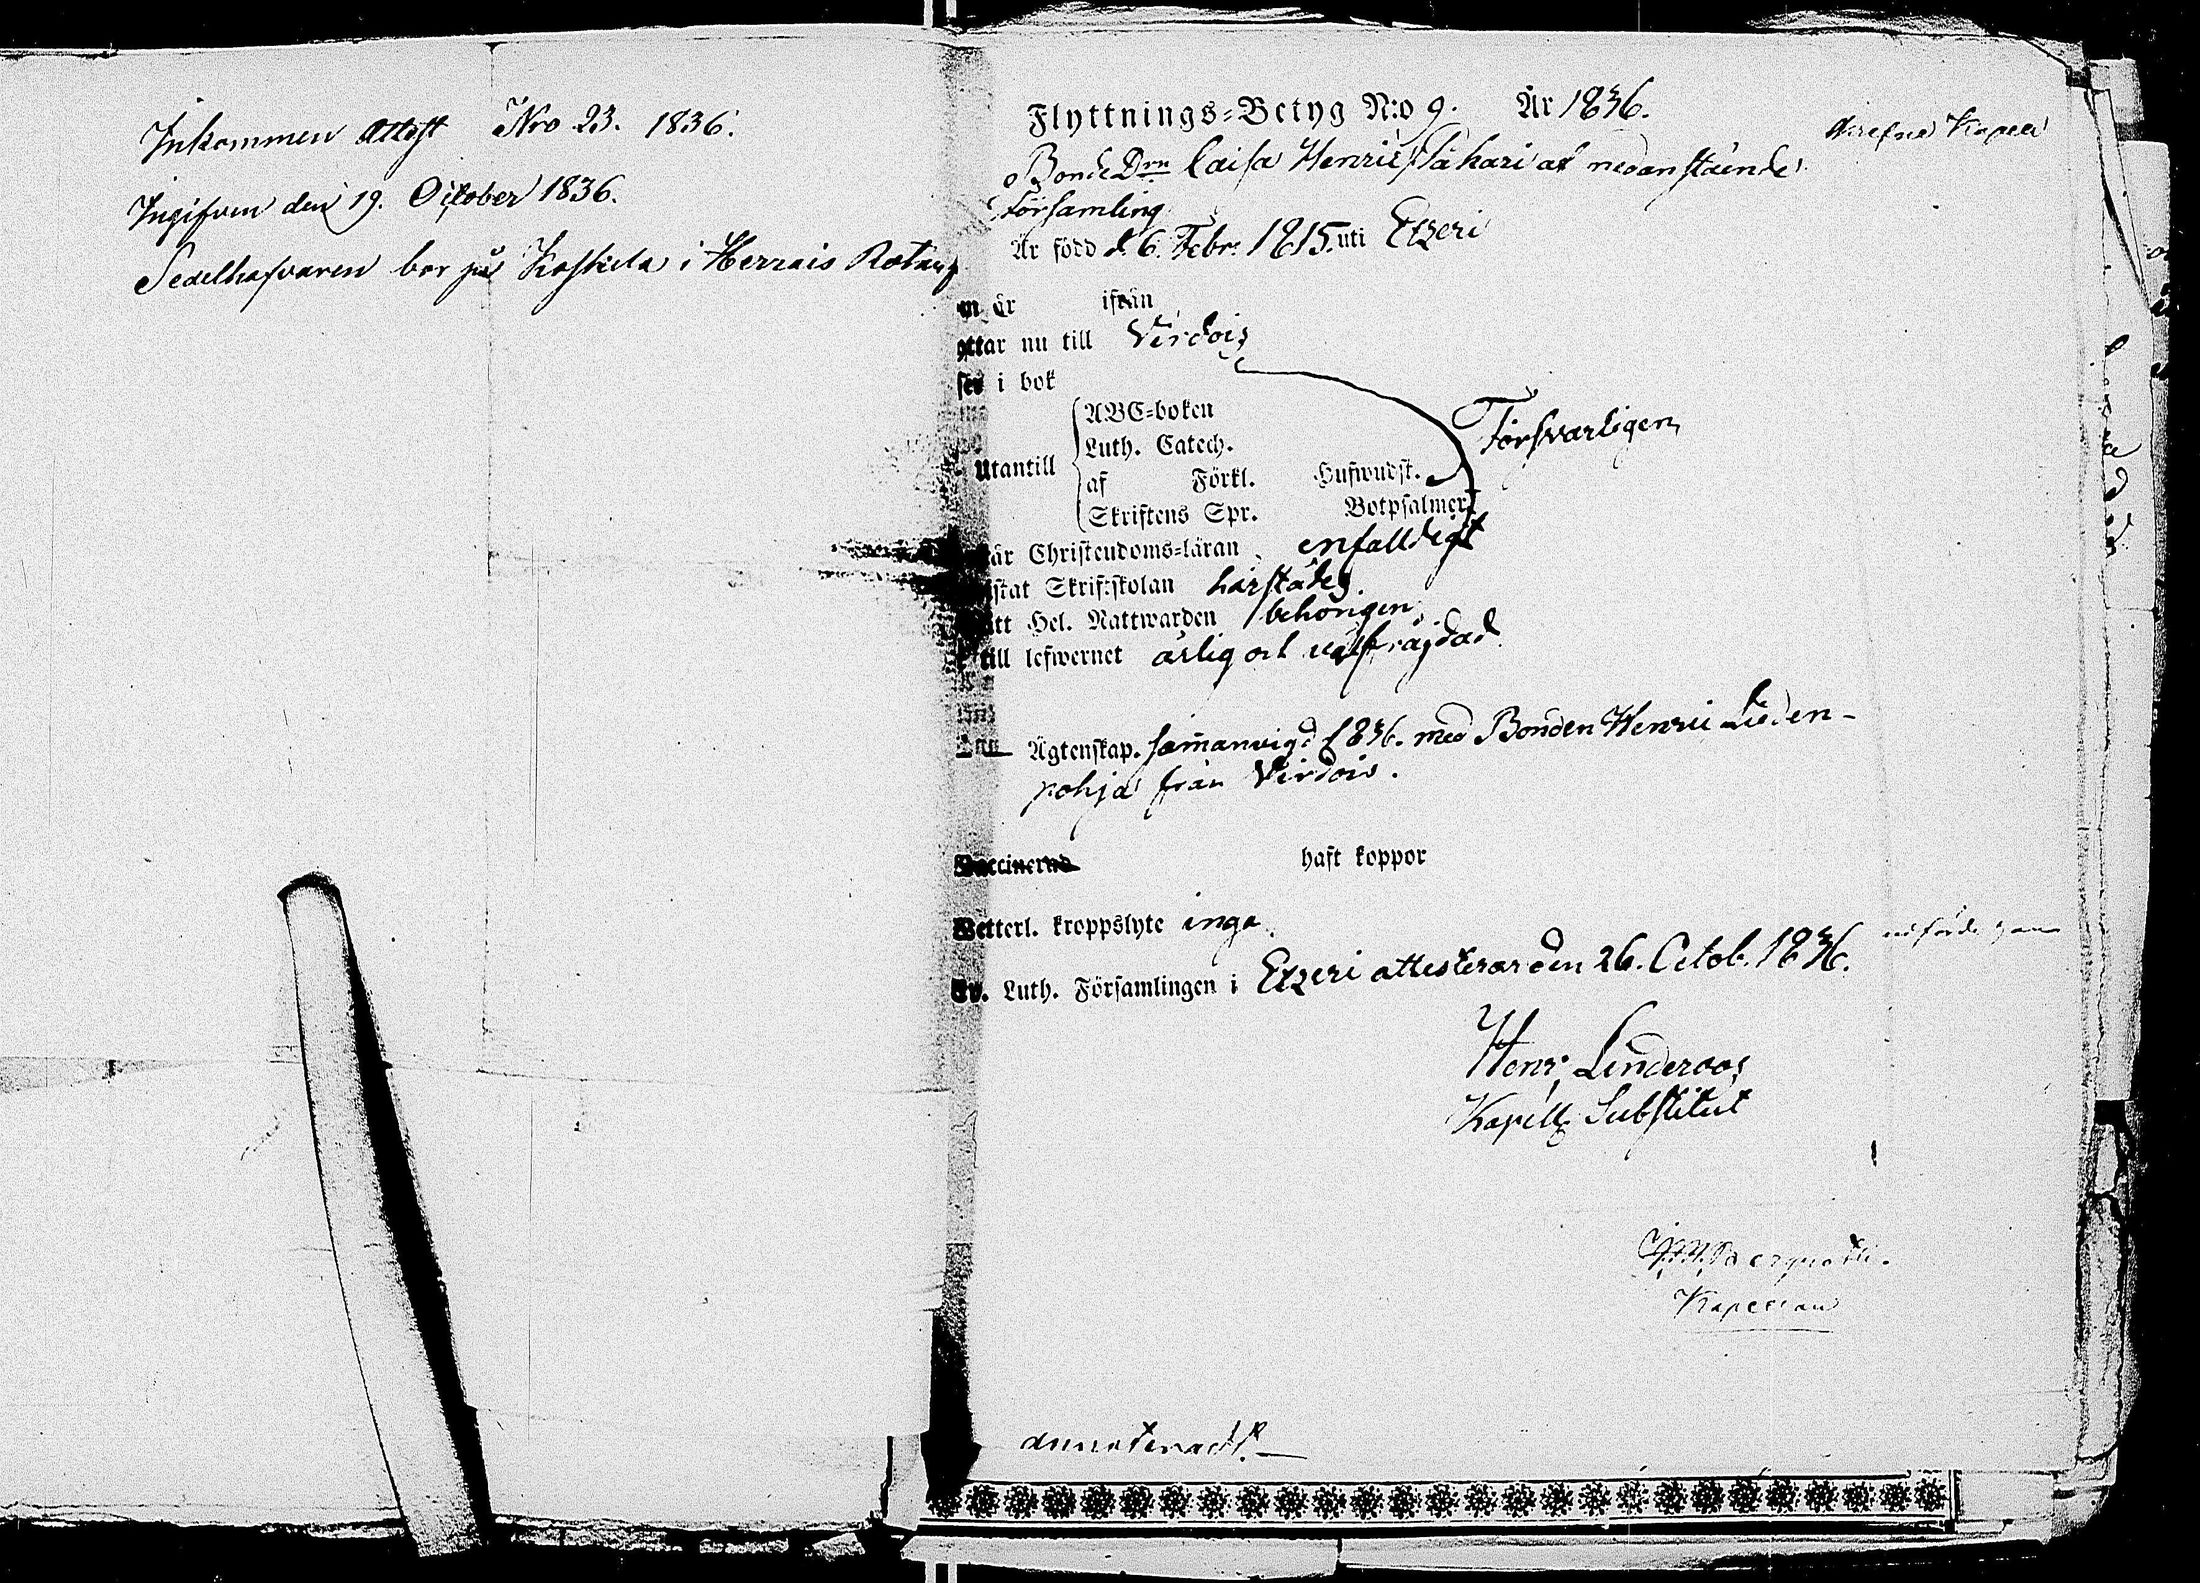 Inkommen Attest Nro 23. 1836.
Ingifven den 19. October 1836.
Sedelhafvaren bor på Koskela i Herrais Rotan
Flyttnings-Betyg N:o 9. År 1836.
Bonde Drn Caisa Henricsd. Sahari af nedanstående
Församling
Är född d. 6. Febr. 1815. uti Etzeri
är ifrån
ttar nu till Virdois
ser i bok
ABC-boken
Försvarligen
Luth. Catech.
Utantill
af Förkl. Hufwudst.
Skriftens Spr. Botpsalmer
år Christendoms-läran enfalldigt
istat Skriftskolan härstädes.
ått Hel. Nattwarden behörigen,
till lefwernet ärlig och välfräjdad.
Ägtenskap. sammanvigd 1836. med Bonden Henric Lieden-
pohja från Virdois.
Vaccinerad haft koppor
Wetterl. kroppslyte inga
Ev. Luth. Församlingen i Etzeri attesterar den 26. Octob. 1836.
Henr. Linderoos
Kapells Substitut
Kapellan